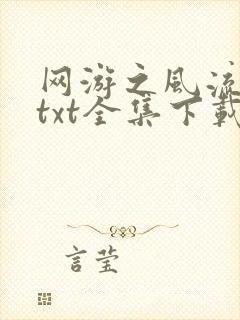 网游之风流
txt全集下载
言莹